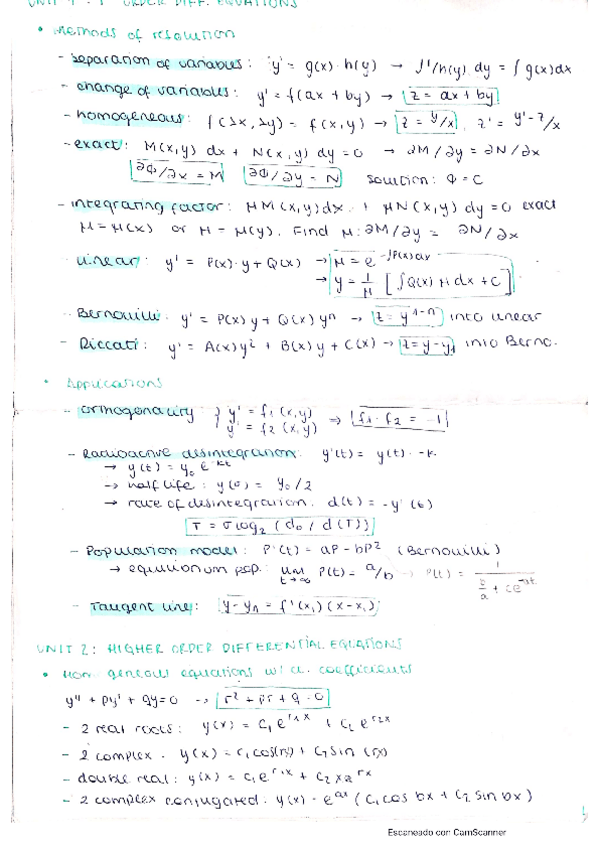 UNIT 1: 1 ORDER DIFF. EQUATIONS
• Methods of resolution
- Separation of variables: y' = g(x)·h(y) → ∫1/h(y) dy = ∫g(x)dx
- change of variables: y' = f(ax + by) → z = ax + by
- homogeneous: f(λx, λy) = f(x,y) → z = y/x, z' = y'-z/x
- exact: M(x,y) dx + N(x,y) dy = 0 → ∂M/∂y = ∂N/∂x
∂Φ/∂x = M ∂Φ/∂y = N solution: Φ = C
- integrating factor: μM(x,y)dx + μN(x,y) dy = 0 exact
μ = μ(x) or μ = μ(y). Find μ: ∂M/∂y = ∂N/∂x
- linear: y' = P(x)·y + Q(x) → μ = e^-∫P(x)dx
→ y = 1/μ [∫Q(x) μ dx + C]
- Bernouilli: y' = P(x)y + Q(x)y^n → z = y^1-n into linear
- Riccati: y' = A(x)y² + B(x)y + C(x) → z = y-y₁ into Berno.
• Applications
- orthogonality { y' = f₁(x,y)
y' = f₂(x,y) → f₁·f₂ = -1
- Radioactive desintegration: y'(t) = y(t)·-k
→ y(t) = y₀ e^-kt
→ half life: y(σ) = y₀/2
→ rate of desintegration: d(t) = -y'(t)
T = σ log₂ (d₀/d(T))
- Population model: P'(t) = aP - bP² (Bernouilli)
→ equilibrium pop.: lim t→∞ P(t) = a/b → P(t) = 1 / (b/a + ce^-at)
- Tangent line: y-y₁ = f'(x₁)(x-x₁)
UNIT 2: HIGHER ORDER DIFFERENTIAL EQUATIONS
• Homogeneous equations w/ ct. coefficients
y'' + py' + qy = 0 → r² + pr + q = 0
- 2 real roots: y(x) = C₁e^r₁x + C₂e^r₂x
- 2 complex. y(x) = C₁cos(rx) + C₂sin(rx)
- double real: y(x) = C₁e^rx + C₂xe^rx
- 2 complex conjugated: y(x) = e^ax (C₁cos bx + C₂sin bx)
Escaneado con CamScanner